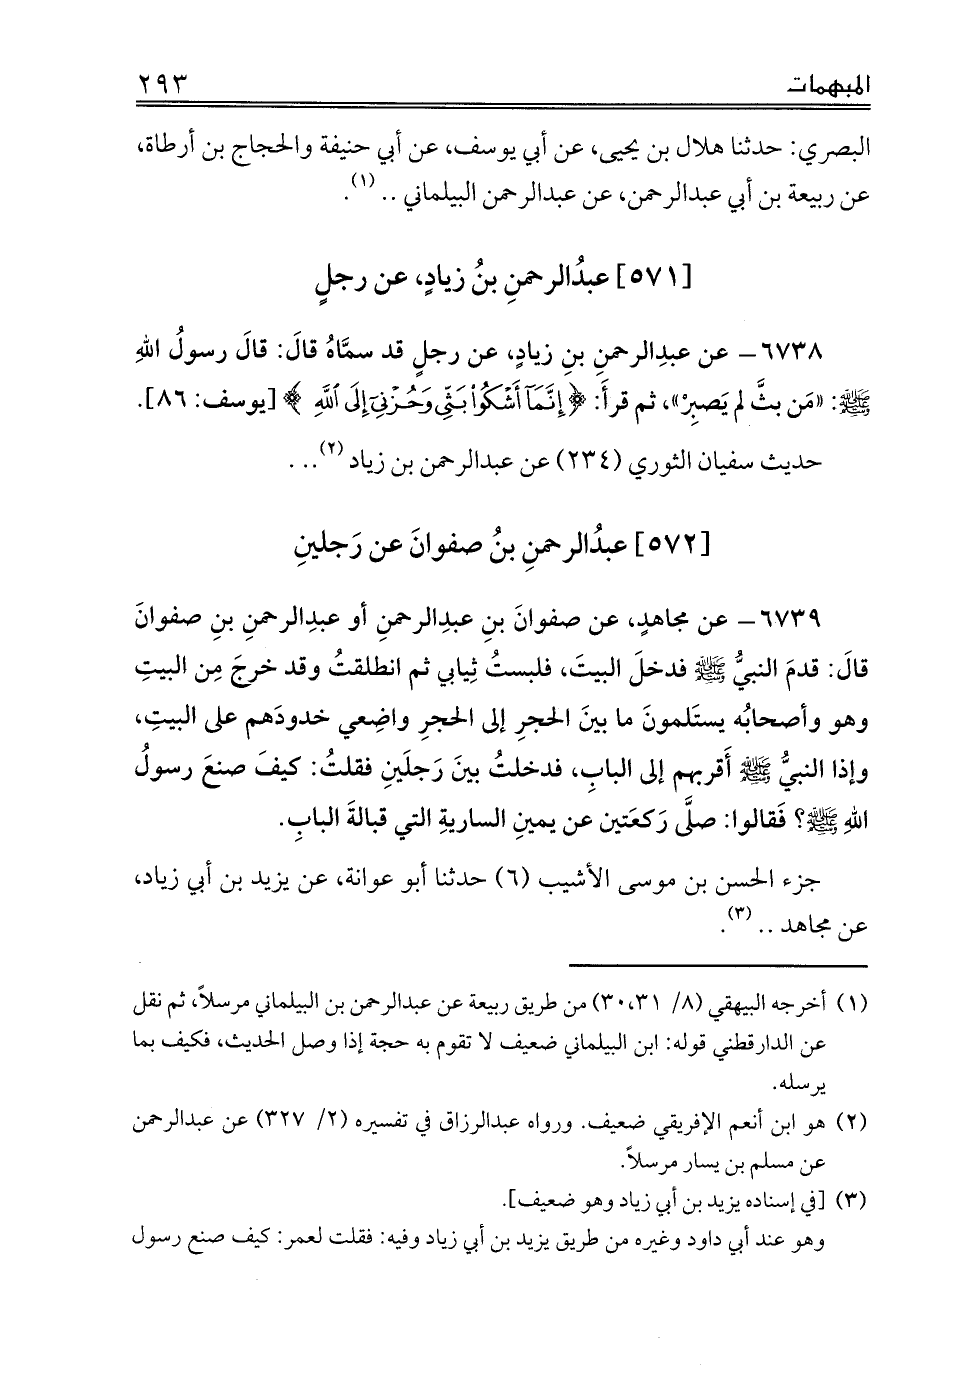 المبهمات ٢٩٣
البصري: حدثنا هلال بن يحيى، عن أبي يوسف، عن أبي حنيفة والحجاج بن أرطاة،
عن ربيعة بن أبي عبدالرحمن، عن عبدالرحمن البيلماني .. (١).
[٥٧١] عبدُالرحمنِ بنُ زيادٍ، عن رجلٍ
٦٧٣٨ – عن عبدِالرحمنِ بنِ زيادٍ، عن رجلٍ قد سمَّاهُ قالَ: قالَ رسولُ اللهِ
ﷺ: «مَن بثَّ لم يَصبِرْ»، ثم قرأَ: ﴿إِنَّمَآ أَشْكُوا۟ بَثِّى وَحُزْنِىٓ إِلَى ٱللَّهِ﴾ [يوسف: ٨٦].
حديث سفيان الثوري (٢٣٤) عن عبدالرحمن بن زياد (٢)...
[٥٧٢] عبدُالرحمنِ بنُ صفوانَ عن رَجلينِ
٦٧٣٩ – عن مجاهدٍ، عن صفوانَ بنِ عبدِالرحمنِ أو عبدِالرحمنِ بنِ صفوانَ
قالَ: قدمَ النبيُّ ﷺ فدخلَ البيتَ، فلبستُ ثِيابي ثم انطلقتُ وقد خرجَ مِن البيتِ
وهو وأصحابُه يستَلمونَ ما بينَ الحجرِ إلى الحجرِ واضِعي خدودَهم على البيتِ،
وإذا النبيُّ ﷺ أَقربهم إلى البابِ، فدخلتُ بينَ رَجلَينِ فقلتُ: كيفَ صنعَ رسولُ
اللهِ ﷺ؟ فَقالوا: صلَّى رَكعَتين عن يمينِ الساريةِ التي قبالةَ البابِ.
جزء الحسن بن موسى الأشيب (٦) حدثنا أبو عوانة، عن يزيد بن أبي زياد،
عن مجاهد .. (٣).
(١) أخرجه البيهقي (٨/ ٣٠،٣١) من طريق ربيعة عن عبدالرحمن بن البيلماني مرسلاً، ثم نقل
عن الدارقطني قوله: ابن البيلماني ضعيف لا تقوم به حجة إذا وصل الحديث، فكيف بما
يرسله.
(٢) هو ابن أنعم الإفريقي ضعيف. ورواه عبدالرزاق في تفسيره (٢/ ٣٢٧) عن عبدالرحمن
عن مسلم بن يسار مرسلاً.
(٣) [في إسناده يزيد بن أبي زياد وهو ضعيف].
وهو عند أبي داود وغيره من طريق يزيد بن أبي زياد وفيه: فقلت لعمر: كيف صنع رسول